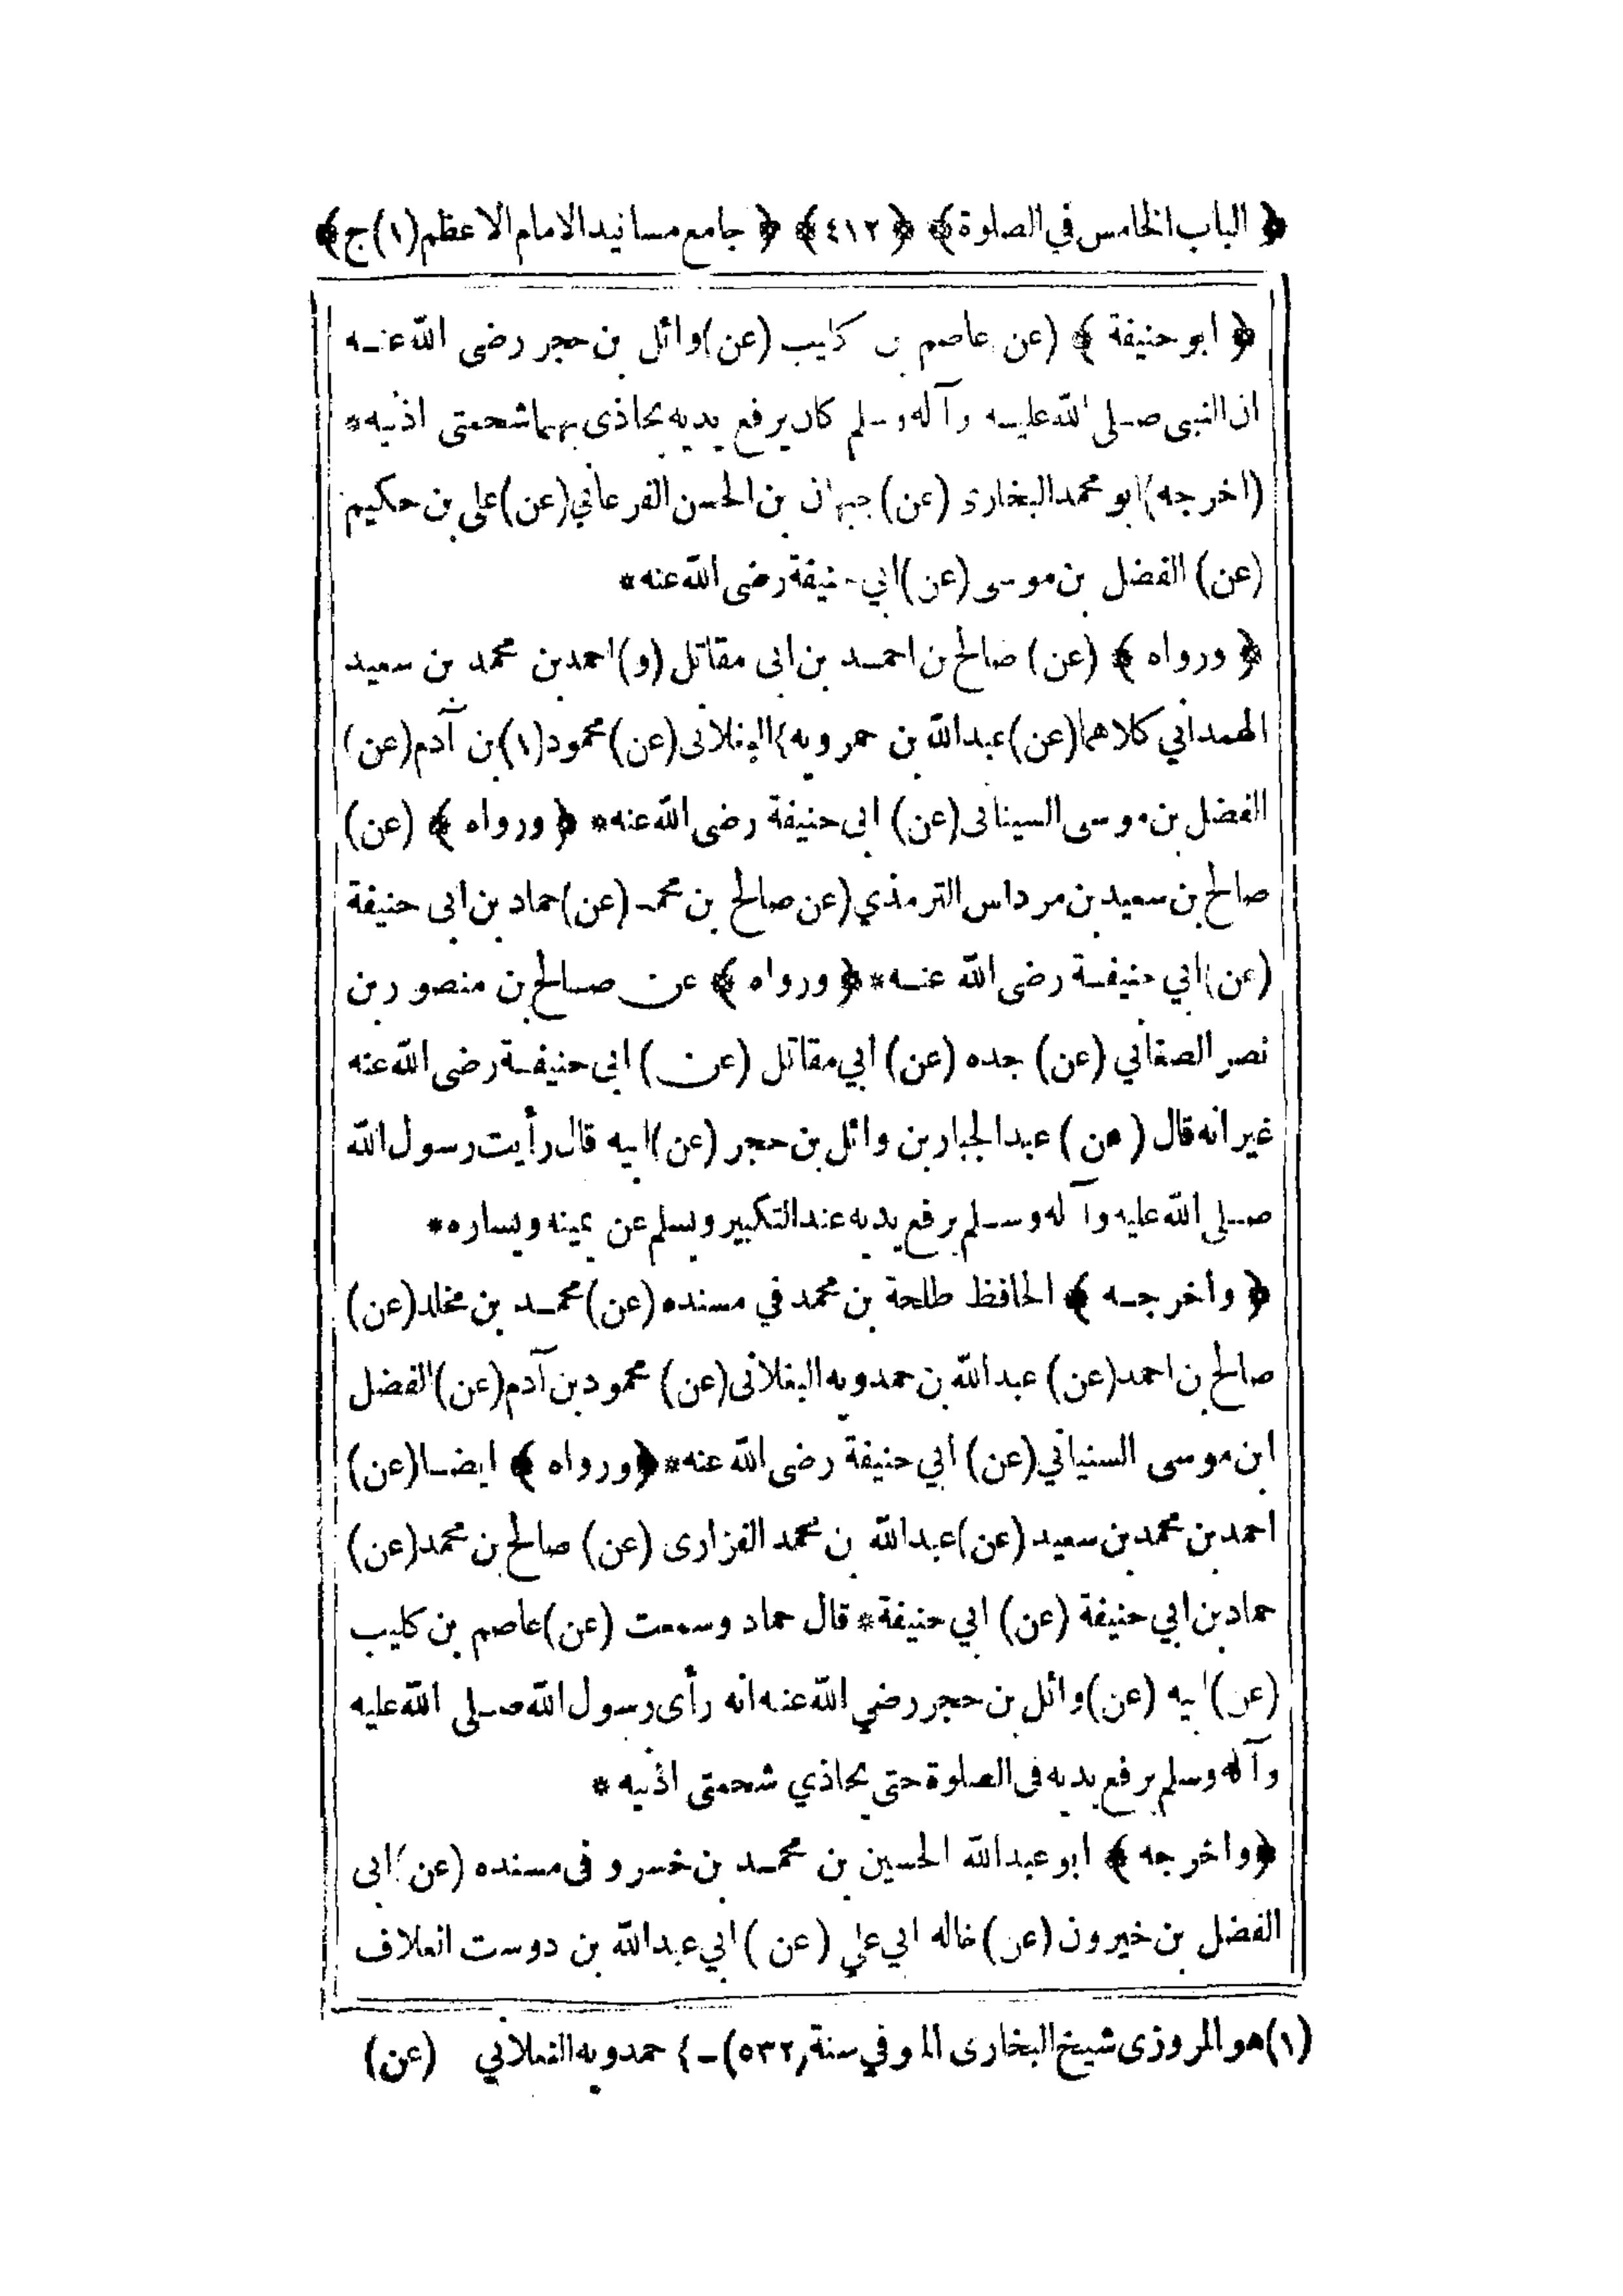 ﴿ الباب الخامس في الصلوة ﴾ ﴿ ٤١٢ ﴾ ﴿ جامع مسانيد الامام الاعظم (١) ج ﴾
﴿ ابو حنيفة ﴾ (عن) عاصم بن كليب (عن) وائل بن حجر رضى الله عنه
ان النبى صلى الله عليه وآله وسلم كان يرفع يديه يحاذى بهما شحمتى اذنيه *
(اخرجه) ابو محمد البخارى (عن) جبهان بن الحسن الفرغاني (عن) على بن حكيم
(عن) الفضل بن موسى (عن) ابي حنيفة رضى الله عنه *
﴿ ورواه ﴾ (عن) صالح بن احمد بن ابى مقاتل (و) احمد بن محمد بن سعيد
الهمداني كلاهما (عن) عبدالله بن حمرويه} البغلانى (عن) محمود (١) بن آدم (عن)
الفضل بن موسى السينانى (عن) ابى حنيفة رضى الله عنه * ﴿ ورواه ﴾ (عن)
صالح بن سعيد بن مرداس الترمذي (عن صالح بن محمد (عن) حماد بن ابى حنيفة
(عن) ابي حنيفة رضى الله عنه * ﴿ ورواه ﴾ عن صالح بن منصور بن
نصر الصغاني (عن) جده (عن) ابي مقاتل (عن) ابى حنيفة رضى الله عنه
غير انه قال (عن) عبد الجبار بن وائل بن حجر (عن) ابيه قال رأيت رسول الله
صلى الله عليه وآله وسلم يرفع يديه عند التكبير ويسلم عن يمينه ويساره *
﴿ وأخرجه ﴾ الحافظ طلحة بن محمد في مسنده (عن) محمد بن مخلد (عن)
صالح بن احمد (عن) عبدالله بن حمدويه البغلانى (عن) محمود بن آدم (عن) الفضل
ابن موسى السنياني (عن) ابي حنيفة رضى الله عنه * ﴿ ورواه ﴾ ايضا (عن)
احمد بن محمد بن سعيد (عن) عبدالله بن محمد الفزارى (عن) صالح بن محمد (عن)
حماد بن ابي حنيفة (عن) ابي حنيفة * قال حماد وسمعت (عن) عاصم بن كليب
(عن) ابيه (عن) وائل بن حجر رضي الله عنه انه رأى رسول الله صلى الله عليه
وآله وسلم يرفع يديه فى الصلوة حتى يحاذي شحمتى اذنيه *
﴿ واخرجه ﴾ ابو عبدالله الحسين بن محمد بن خسرو فى مسنده (عن) ابى
الفضل بن خيرون (عن) خاله ابي على (عن) ابي عبدالله بن دوست العلاف
(١) هو المروزى شيخ البخارى المتوفي سنة (٥٣٢) - } حمدويه النعلاني (عن)